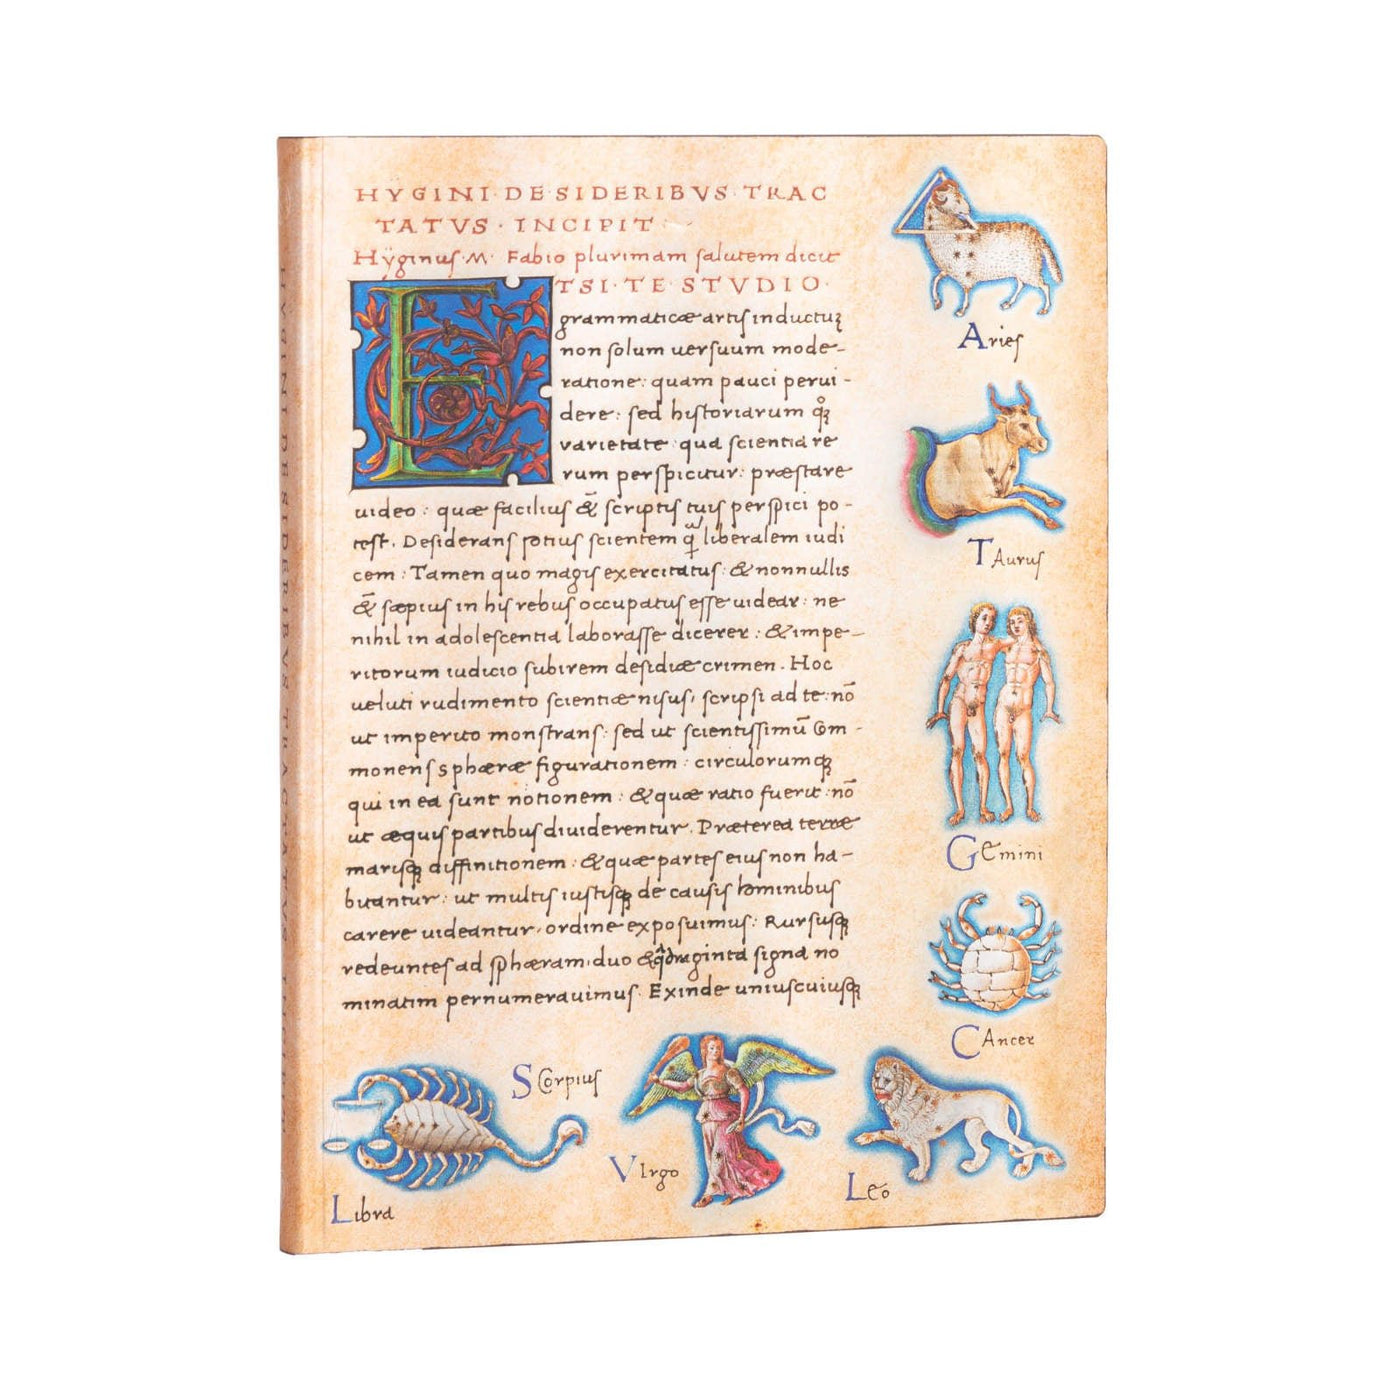 HYGINI·DE·SIDERIBVS·TRAC
TATVS·INCIPIT
Hÿginus·M· Fabio plurimam salutem dicit
ETSI·TE·STVDIO·
grammaticæ artis inductuꝫ
non solum uersuum mode-
ratione: quam pauci perui-
dere: sed historiarum qꝫ
varietate qua scientia re
rum perspicitur: præstare
uideo: quæ facilius & scriptis tuis perspici po-
test. Desiderans potius scientem q̃ liberalem iudi
cem: Tamen quo magis exercitatus: & nonnullis
& sæpius in his rebus occupatus esse uidear: ne
nihil in adolescentia laborasse dicerer: & impe-
ritorum iudicio subirem desidiæ crimen. Hoc
ueluti rudimento scientiæ nisus, scripsi ad te: nō
ut imperito monstrans: sed ut scientissimū com-
monens sphæræ figurationem: circulorumqꝫ
qui in ea sunt notionem: & quæ ratio fuerit: nō
ut æquis partibus diuiderentur. Præterea terræ
marisqꝫ diffinitionem: & quæ partes eius non ha-
bitantur: ut multis iustisqꝫ de causis hominibus
carere uideantur, ordine exposuimus: Rursusqꝫ
redeuntes ad sphæram, duo & q̃draginta signa no
minatim pernumerauimus. Exinde uniuscuiusqꝫ
Aries
TAurus
Gemini
CAncer
Leo
VIrgo
SCorpius
Libra
HYGINI DE SIDERIBVS TRACTATVS